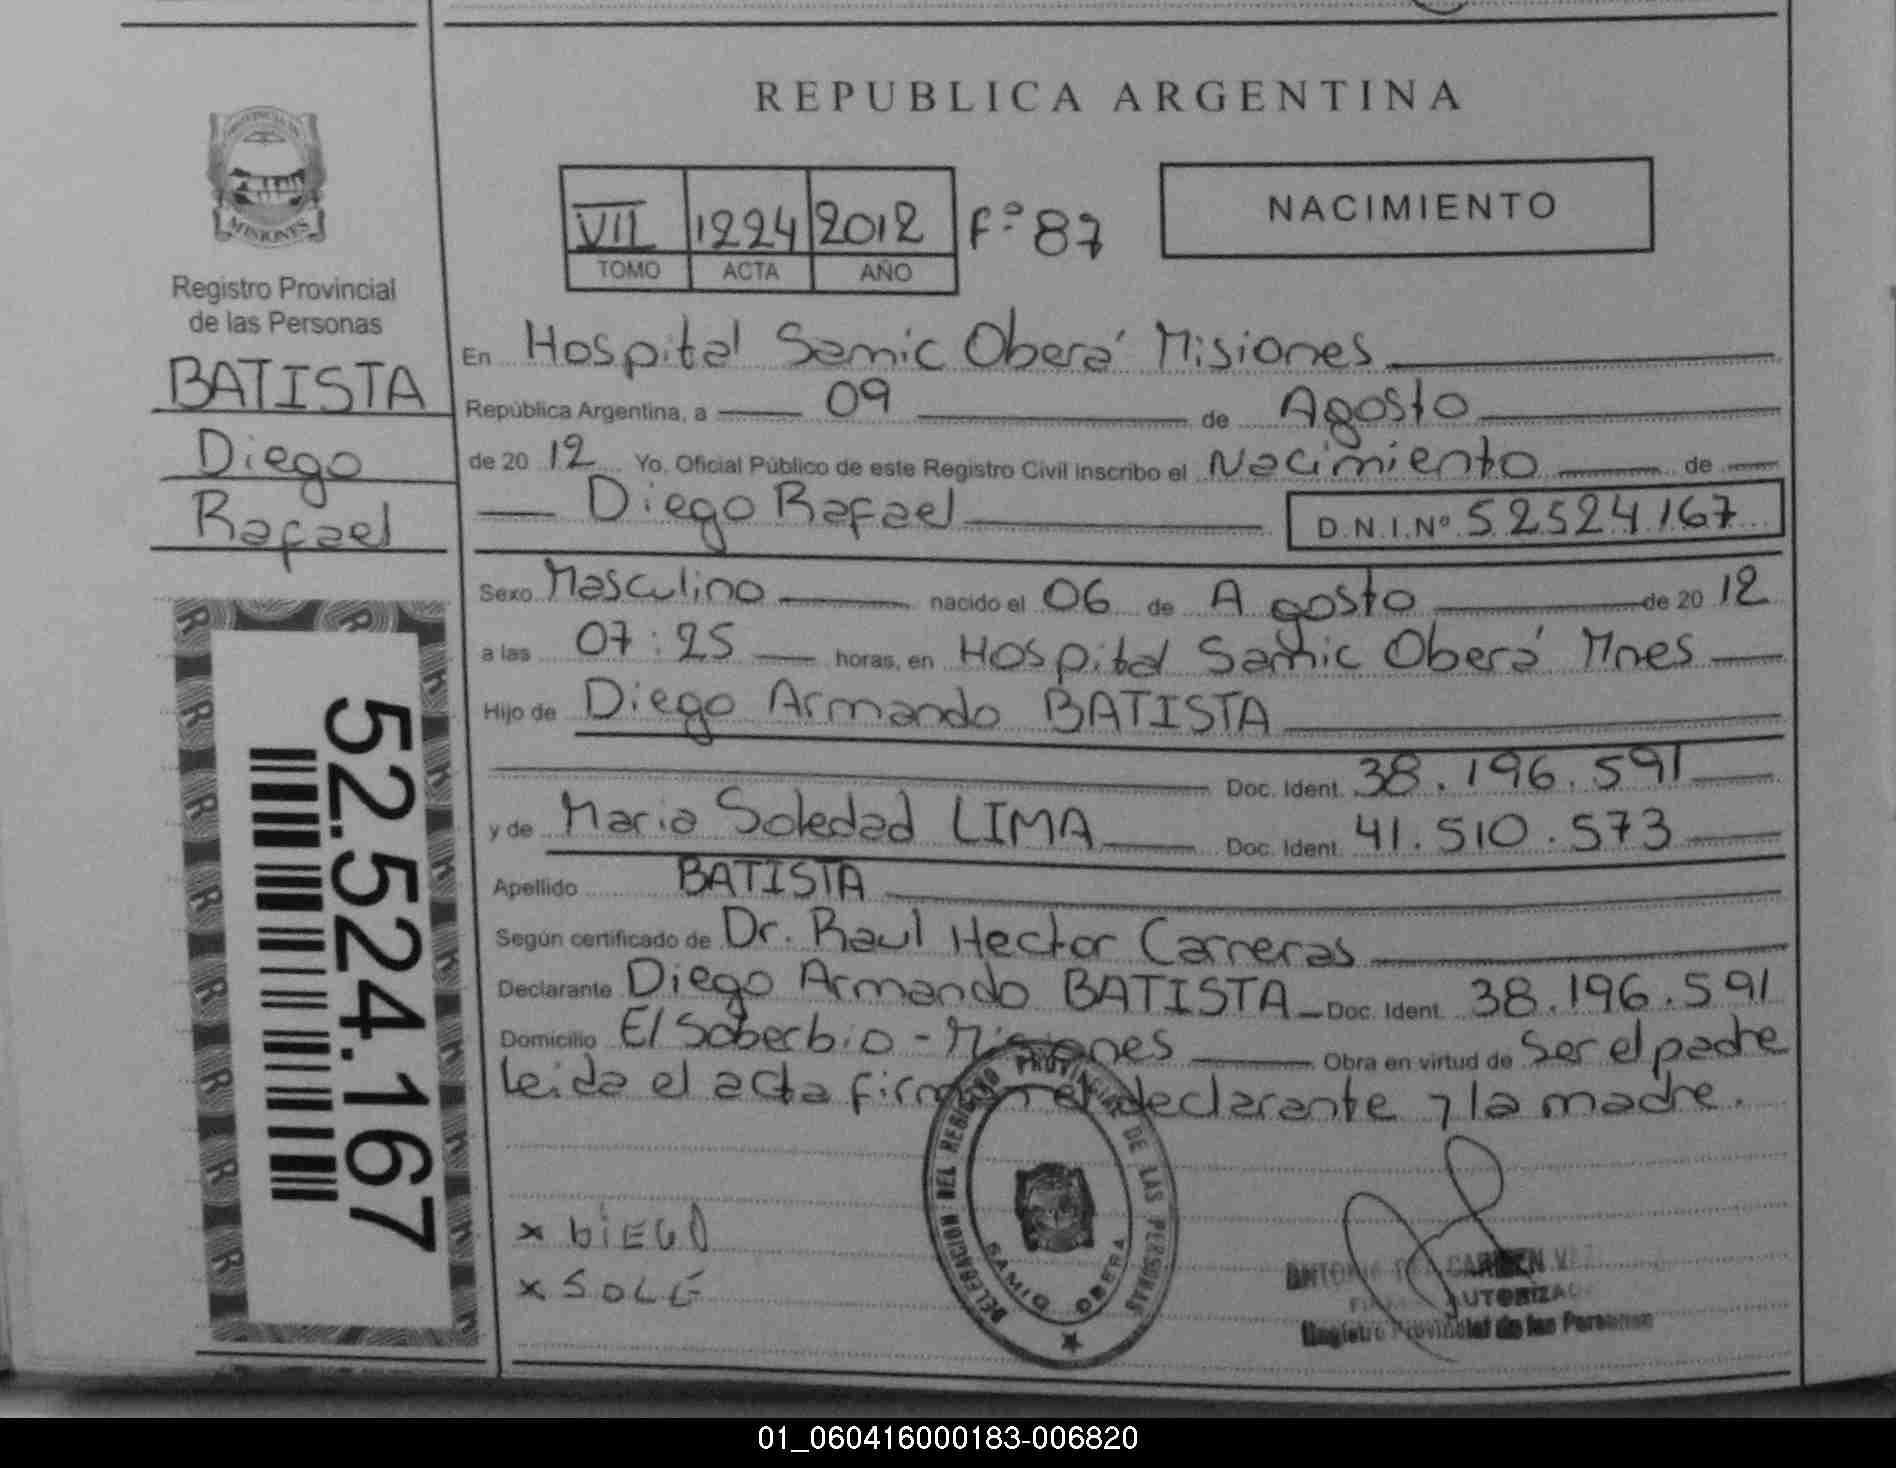 REPUBLICA ARGENTINA
PROVINCIA DE
MISIONES
Registro Provincial
de las Personas
BATISTA
Diego
Rafael
52.524.167
VII 1224 2012 Fº 87
TOMO ACTA AÑO
NACIMIENTO
En Hospital Samic Oberá Misiones
República Argentina, a 09 de Agosto
de 20 12 Yo, Oficial Público de este Registro Civil inscribo el Nacimiento de
Diego Rafael D.N.I.Nº 52524167
Sexo Masculino nacido el 06 de Agosto de 20 12
a las 07:25 horas, en Hospital Samic Oberá Mnes
Hijo de Diego Armando BATISTA
Doc. Ident. 38.196.591
y de Maria Soledad LIMA Doc. Ident. 41.510.573
Apellido BATISTA
Según certificado de Dr. Raul Hector Carreras
Declarante Diego Armando BATISTA Doc. Ident. 38.196.591
Domicilio El Soberbio - Misiones Obra en virtud de Ser el padre
Leida el acta firman el declarante y la madre.
x DIEGO
x SOLE
DELEGACION DEL REGISTRO PROVINCIAL DE LAS PERSONAS
SAMIC OBERA
DEL CARMEN
AUTORIZAD
Registro Provincial de las Personas
01_060416000183-006820